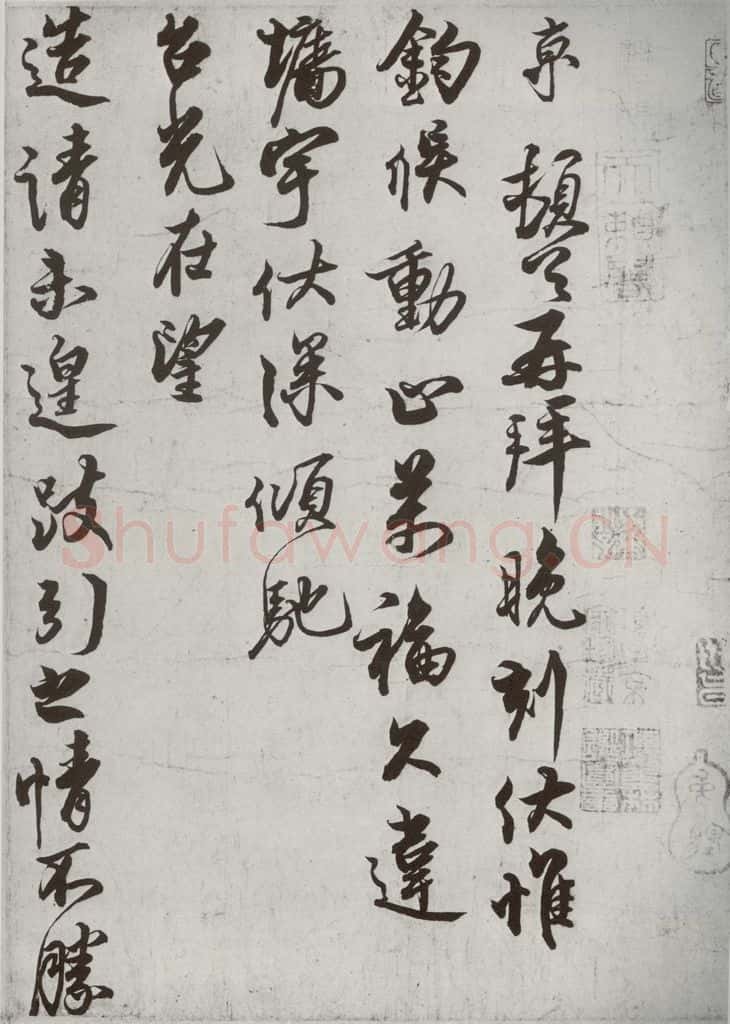 京 頓首再拜晚刻伏惟
鈞候動止萬福久違
墻宇伏深傾馳
台光在望
造請未遑跂引之情不勝
Shufawang.CN